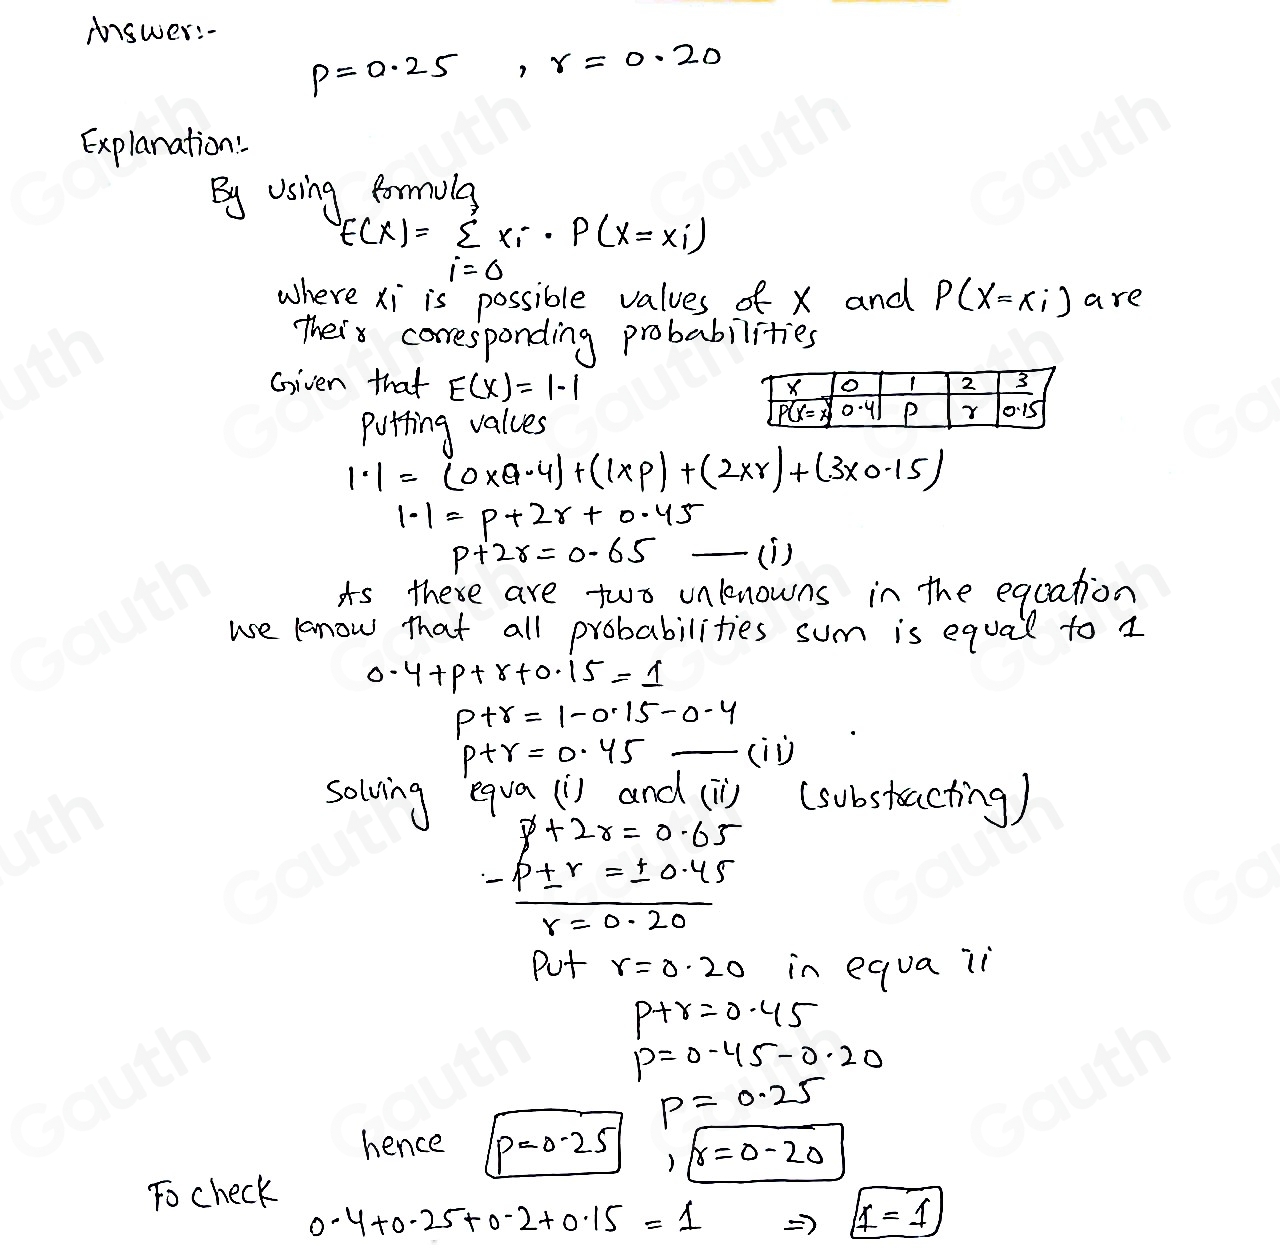 Answer:-
p=0.25 , r = 0.20
Explanation:-
By using formula
E(X)= Σ xi · P(X=xi)
i=0
where xi is possible values of X and P(X=xi) are
their corresponding probabilities
Given that E(X)= 1.1
X 0 1 2 3
P(X=x) 0.4 p r 0.15
putting values
1.1 = (0x0.4)+(1xp)+(2xr)+(3x0.15)
1.1 = p+2r+0.45
p+2r=0.65 —(i)
As there are two unknowns in the equation
we know that all probabilities sum is equal to 1
0.4+p+r+0.15=1
p+r=1-0.15-0.4
p+r=0.45 —(ii)
Solving equa (i) and (ii) (substracting)
p+2r=0.65
-p±r=±0.45
r=0.20
Put r=0.20 in equa ii
p+r=0.45
p=0.45-0.20
p=0.25
hence p=0.25 , r=0.20
To check
0.4+0.25+0.2+0.15 = 1 ⇒ 1=1
Gauth